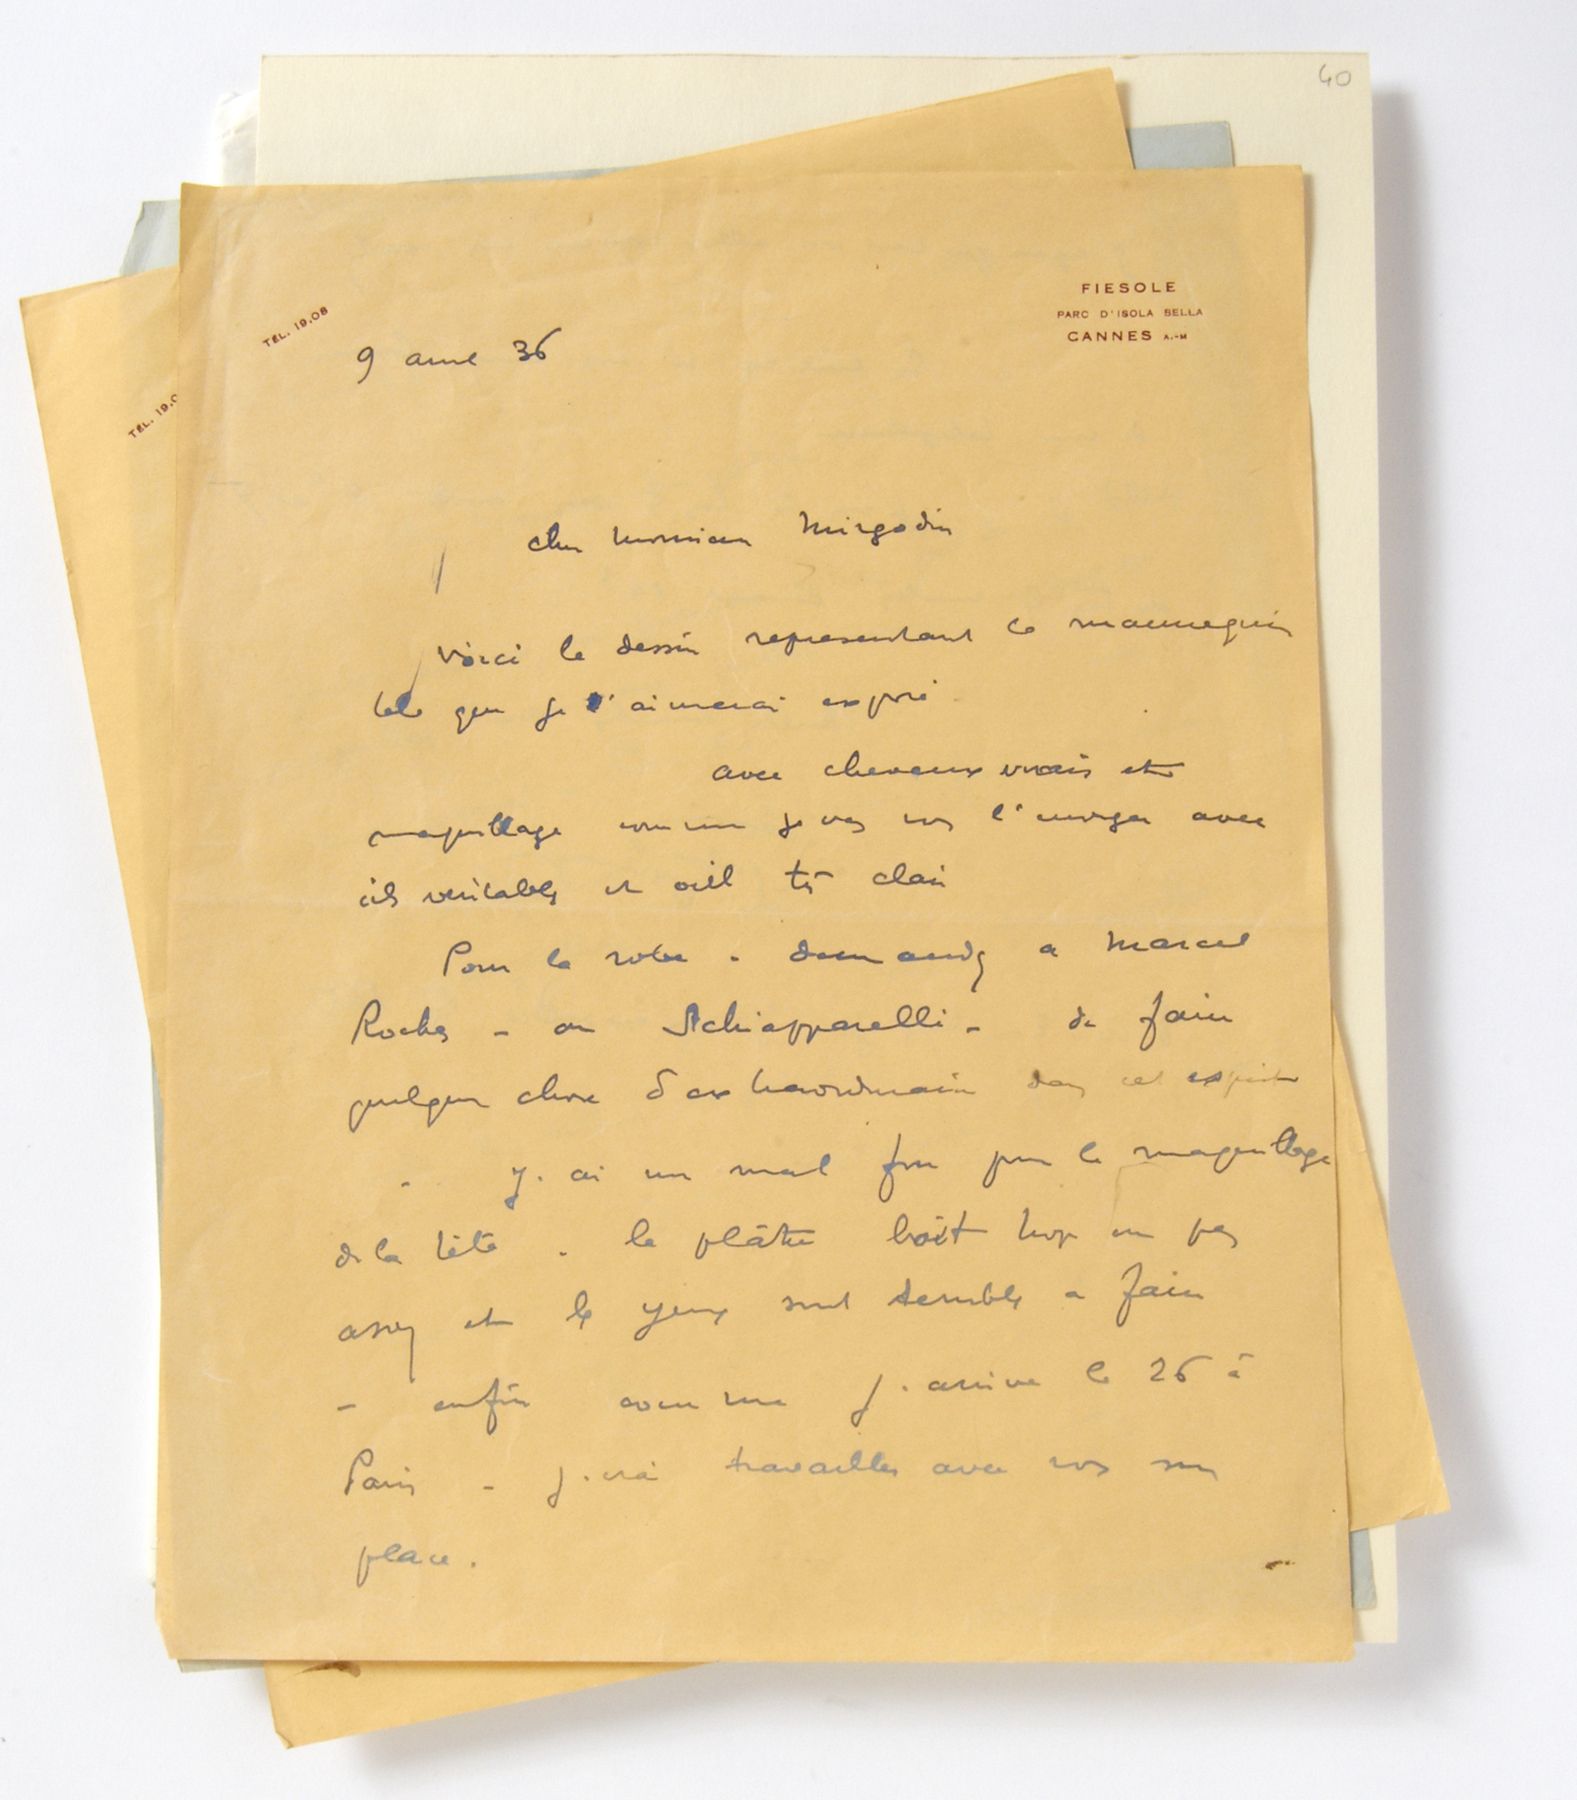 40
FIESOLE
PARC D'ISOLA BELLA
CANNES A.-M
TEL. 19.08
TEL. 19.0
9 avril 36
cher monsieur Mirgodin
Voici le dessin representant ce mannequin
tel que je l'aimerai exposé
avec cheveux vrais et
maquillage comme je vais vous l'envoyer avec
cils veritables et oeil très clair
Pour la robe - demandez a Marcel
Rochas - ou Schiapparelli - de faire
quelque chose d'extraordinaire dans cet esprit
- j'ai un mal fou pour le maquillage
de la tête - le plâtre boit trop ou pas
assez et les yeux sont terribles a faire
- enfin comme j'arrive le 26 à
Paris - j'irai travailler avec vous sur
place.